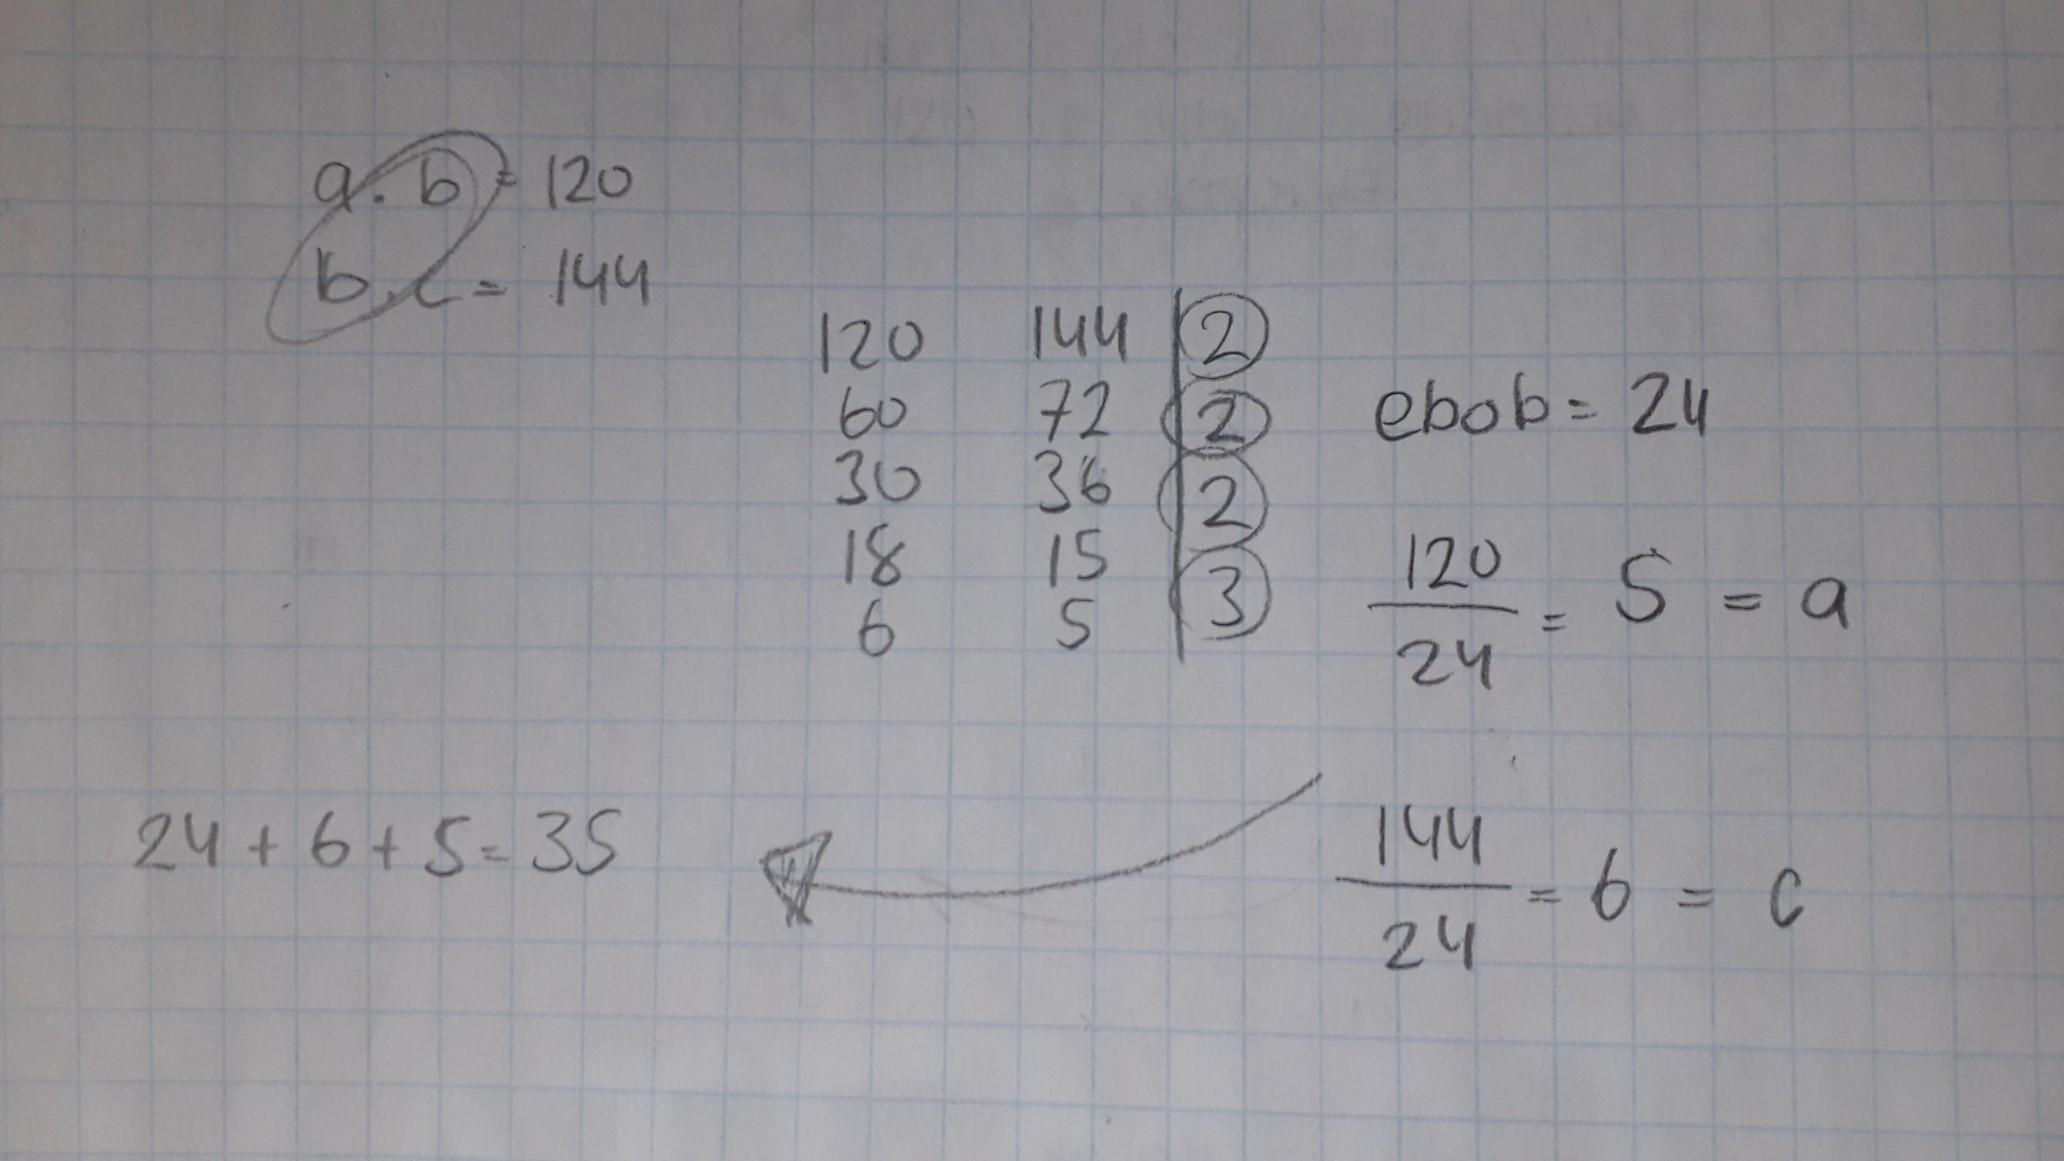 a.b = 120
b.c = 144
120 144 2
60 72 2
30 36 2
18 15 3
6 5
ebob = 24
120/24 = 5 = a
144/24 = 6 = c
24 + 6 + 5 = 35